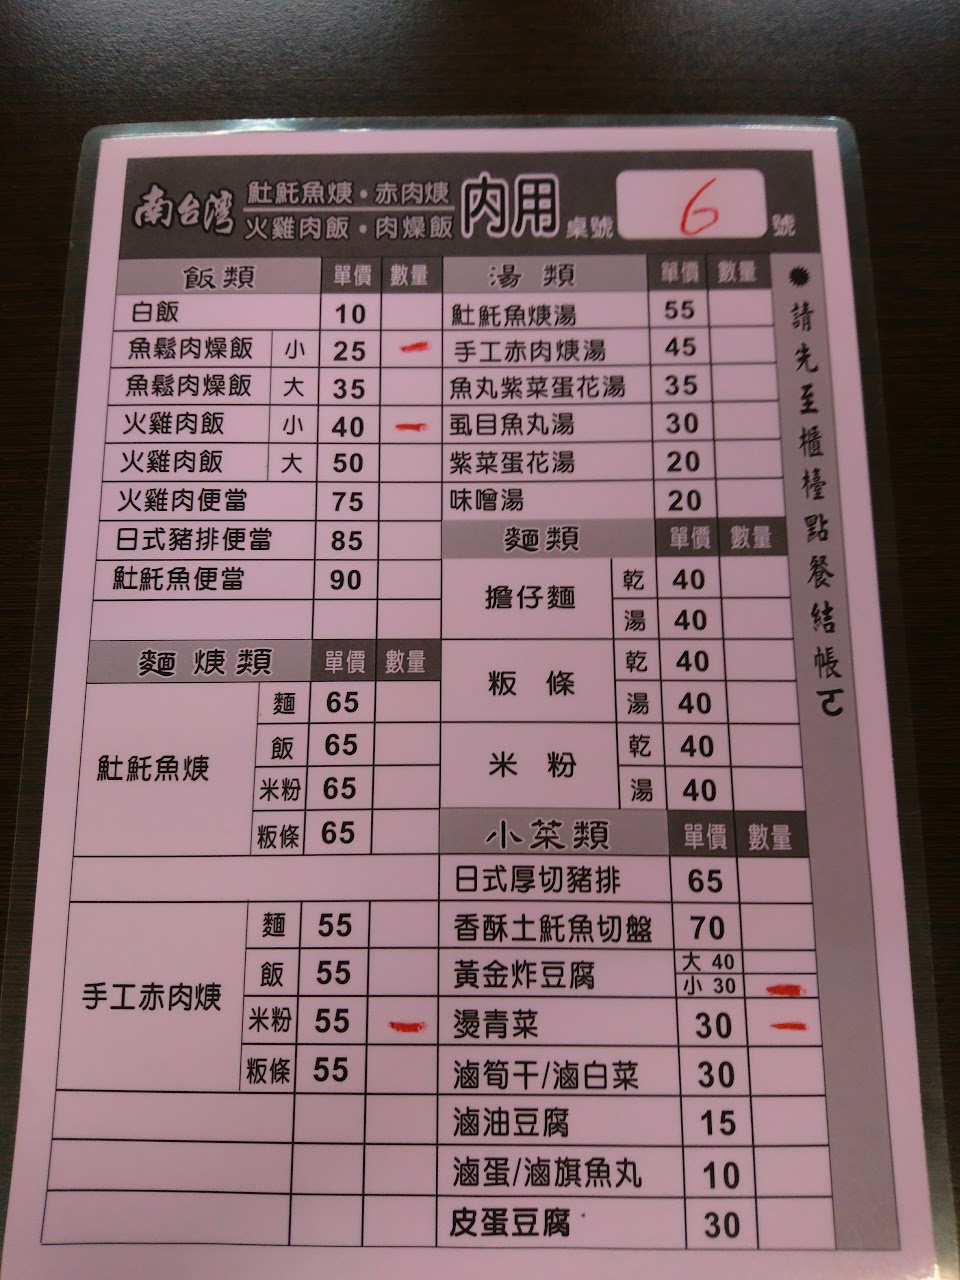 南台灣 䰾魠魚焿・赤肉焿 內用 桌號 6 號
火雞肉飯・肉燥飯
飯類 單價 數量
白飯 10
魚鬆肉燥飯 小 25 一
魚鬆肉燥飯 大 35
火雞肉飯 小 40 一
火雞肉飯 大 50
火雞肉便當 75
日式豬排便當 85
䰾魠魚便當 90
麵焿類 單價 數量
䰾魠魚焿 麵 65
飯 65
米粉 65
粄條 65
手工赤肉焿 麵 55
飯 55
米粉 55 一
粄條 55
湯類 單價 數量
䰾魠魚焿湯 55
手工赤肉焿湯 45
魚丸紫菜蛋花湯 35
虱目魚丸湯 30
紫菜蛋花湯 20
味噌湯 20
麵類 單價 數量
擔仔麵 乾 40
湯 40
粄條 乾 40
湯 40
米粉 乾 40
湯 40
小菜類 單價 數量
日式厚切豬排 65
香酥土魠魚切盤 70
黃金炸豆腐 大 40
小 30 一
燙青菜 30 一
滷筍干/滷白菜 30
滷油豆腐 15
滷蛋/滷旗魚丸 10
皮蛋豆腐 30
請先至櫃檯點餐結帳